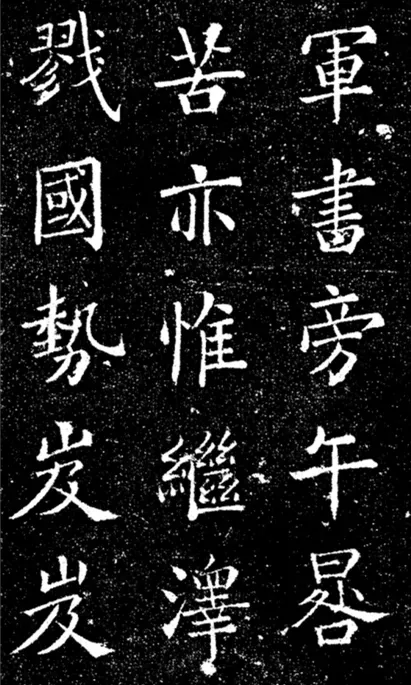 軍書旁午晷
苦亦惟繼澤
戮國勢岌岌